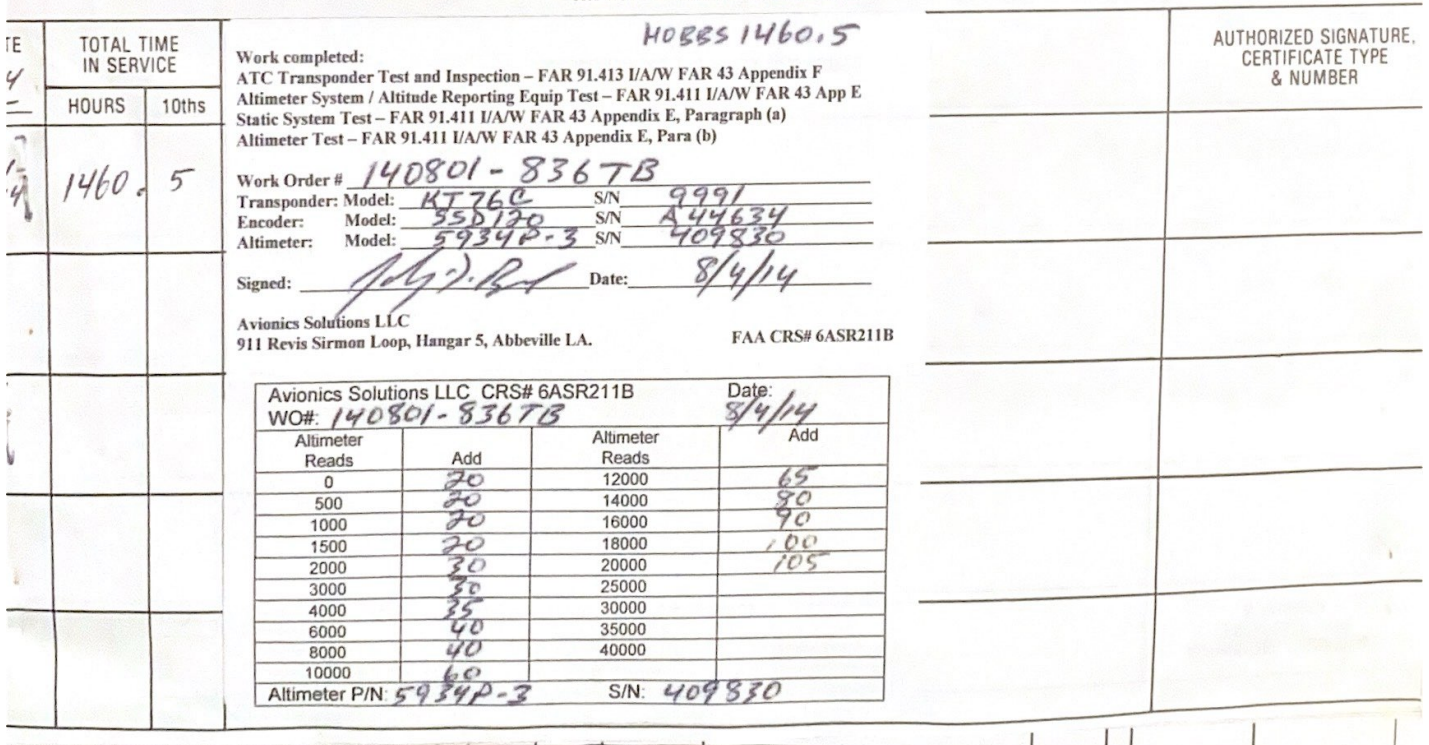 HOBBS 1460.5
TOTAL TIME
IN SERVICE
HOURS 10ths
1460. 5
AUTHORIZED SIGNATURE,
CERTIFICATE TYPE
& NUMBER
Work completed:
ATC Transponder Test and Inspection – FAR 91.413 I/A/W FAR 43 Appendix F
Altimeter System / Altitude Reporting Equip Test – FAR 91.411 I/A/W FAR 43 App E
Static System Test – FAR 91.411 I/A/W FAR 43 Appendix E, Paragraph (a)
Altimeter Test – FAR 91.411 I/A/W FAR 43 Appendix E, Para (b)
Work Order # 140801-836TB
Transponder: Model: KT76C S/N 9991
Encoder: Model: SSD120 S/N A44634
Altimeter: Model: 5934P-3 S/N 409830
Signed: Date: 8/4/14
Avionics Solutions LLC
911 Revis Sirmon Loop, Hangar 5, Abbeville LA. FAA CRS# 6ASR211B
Avionics Solutions LLC CRS# 6ASR211B Date:
WO#: 140801-836TB 8/4/14
Altimeter Reads Add Altimeter Reads Add
0 20 12000 65
500 20 14000 80
1000 20 16000 90
1500 20 18000 100
2000 30 20000 105
3000 30 25000
4000 35 30000
6000 40 35000
8000 40 40000
10000 60
Altimeter P/N: 5934P-3 S/N: 409830